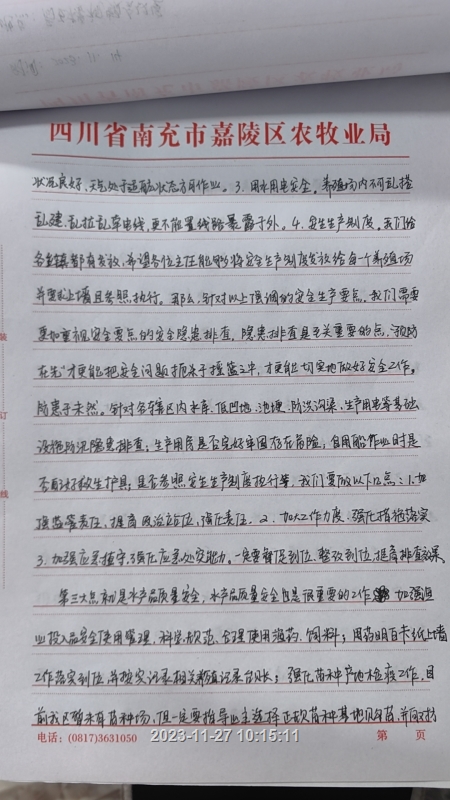 四川省南充市嘉陵区农牧业局
状况良好、天气处于适航状态方可作业。3.用水用电安全。养殖场内不可乱搭
乱建、乱拉乱牵电线,更不能置线路暴露于外。4.安全生产制度。我们给
各乡镇都有发放,希望各位主任能够将安全生产制度发放给每一个养殖场
并要求上墙且参照执行。那么,针对以上强调的安全生产要点,我们需要
更加重视安全要点的安全隐患排查,隐患排查是至关重要的点,预防
在先"才更能把安全问题扼杀于摇篮之中,才更能切实地做好安全工作。
防患于未然。针对各辖区内水库、低凹地、池塘、防洪沟渠、生产用电等基础
设施防汛隐患排查;生产用房是否完好牢固存在危险;自用船作业时是
否有救生护具;是否参照安全生产制度执行等,我们要做以下几点:1.加
强监管责任,提高政治站位,强化责任。2.加大工作力度,强化措施落实
3.加强应急值守,强化应急处突能力。一定要督促到位、整改到位、提高排查效果。
第三大点就是水产品质量安全,水产品质量安全也是很重要的工作 加强渔
业投入品安全使用管理,科学、规范、合理使用渔药、饲料;用药明白卡纸上墙
工作落实到位,并按实记录相关养殖记录台账;强化苗种产地检疫工作,目
前我区暂未有苗种场,但一定要指导业主选择正规苗种基地购苗,并同对
电话:(0817)3631050
第 页
装
订
线
2023-11-27 10:15:11